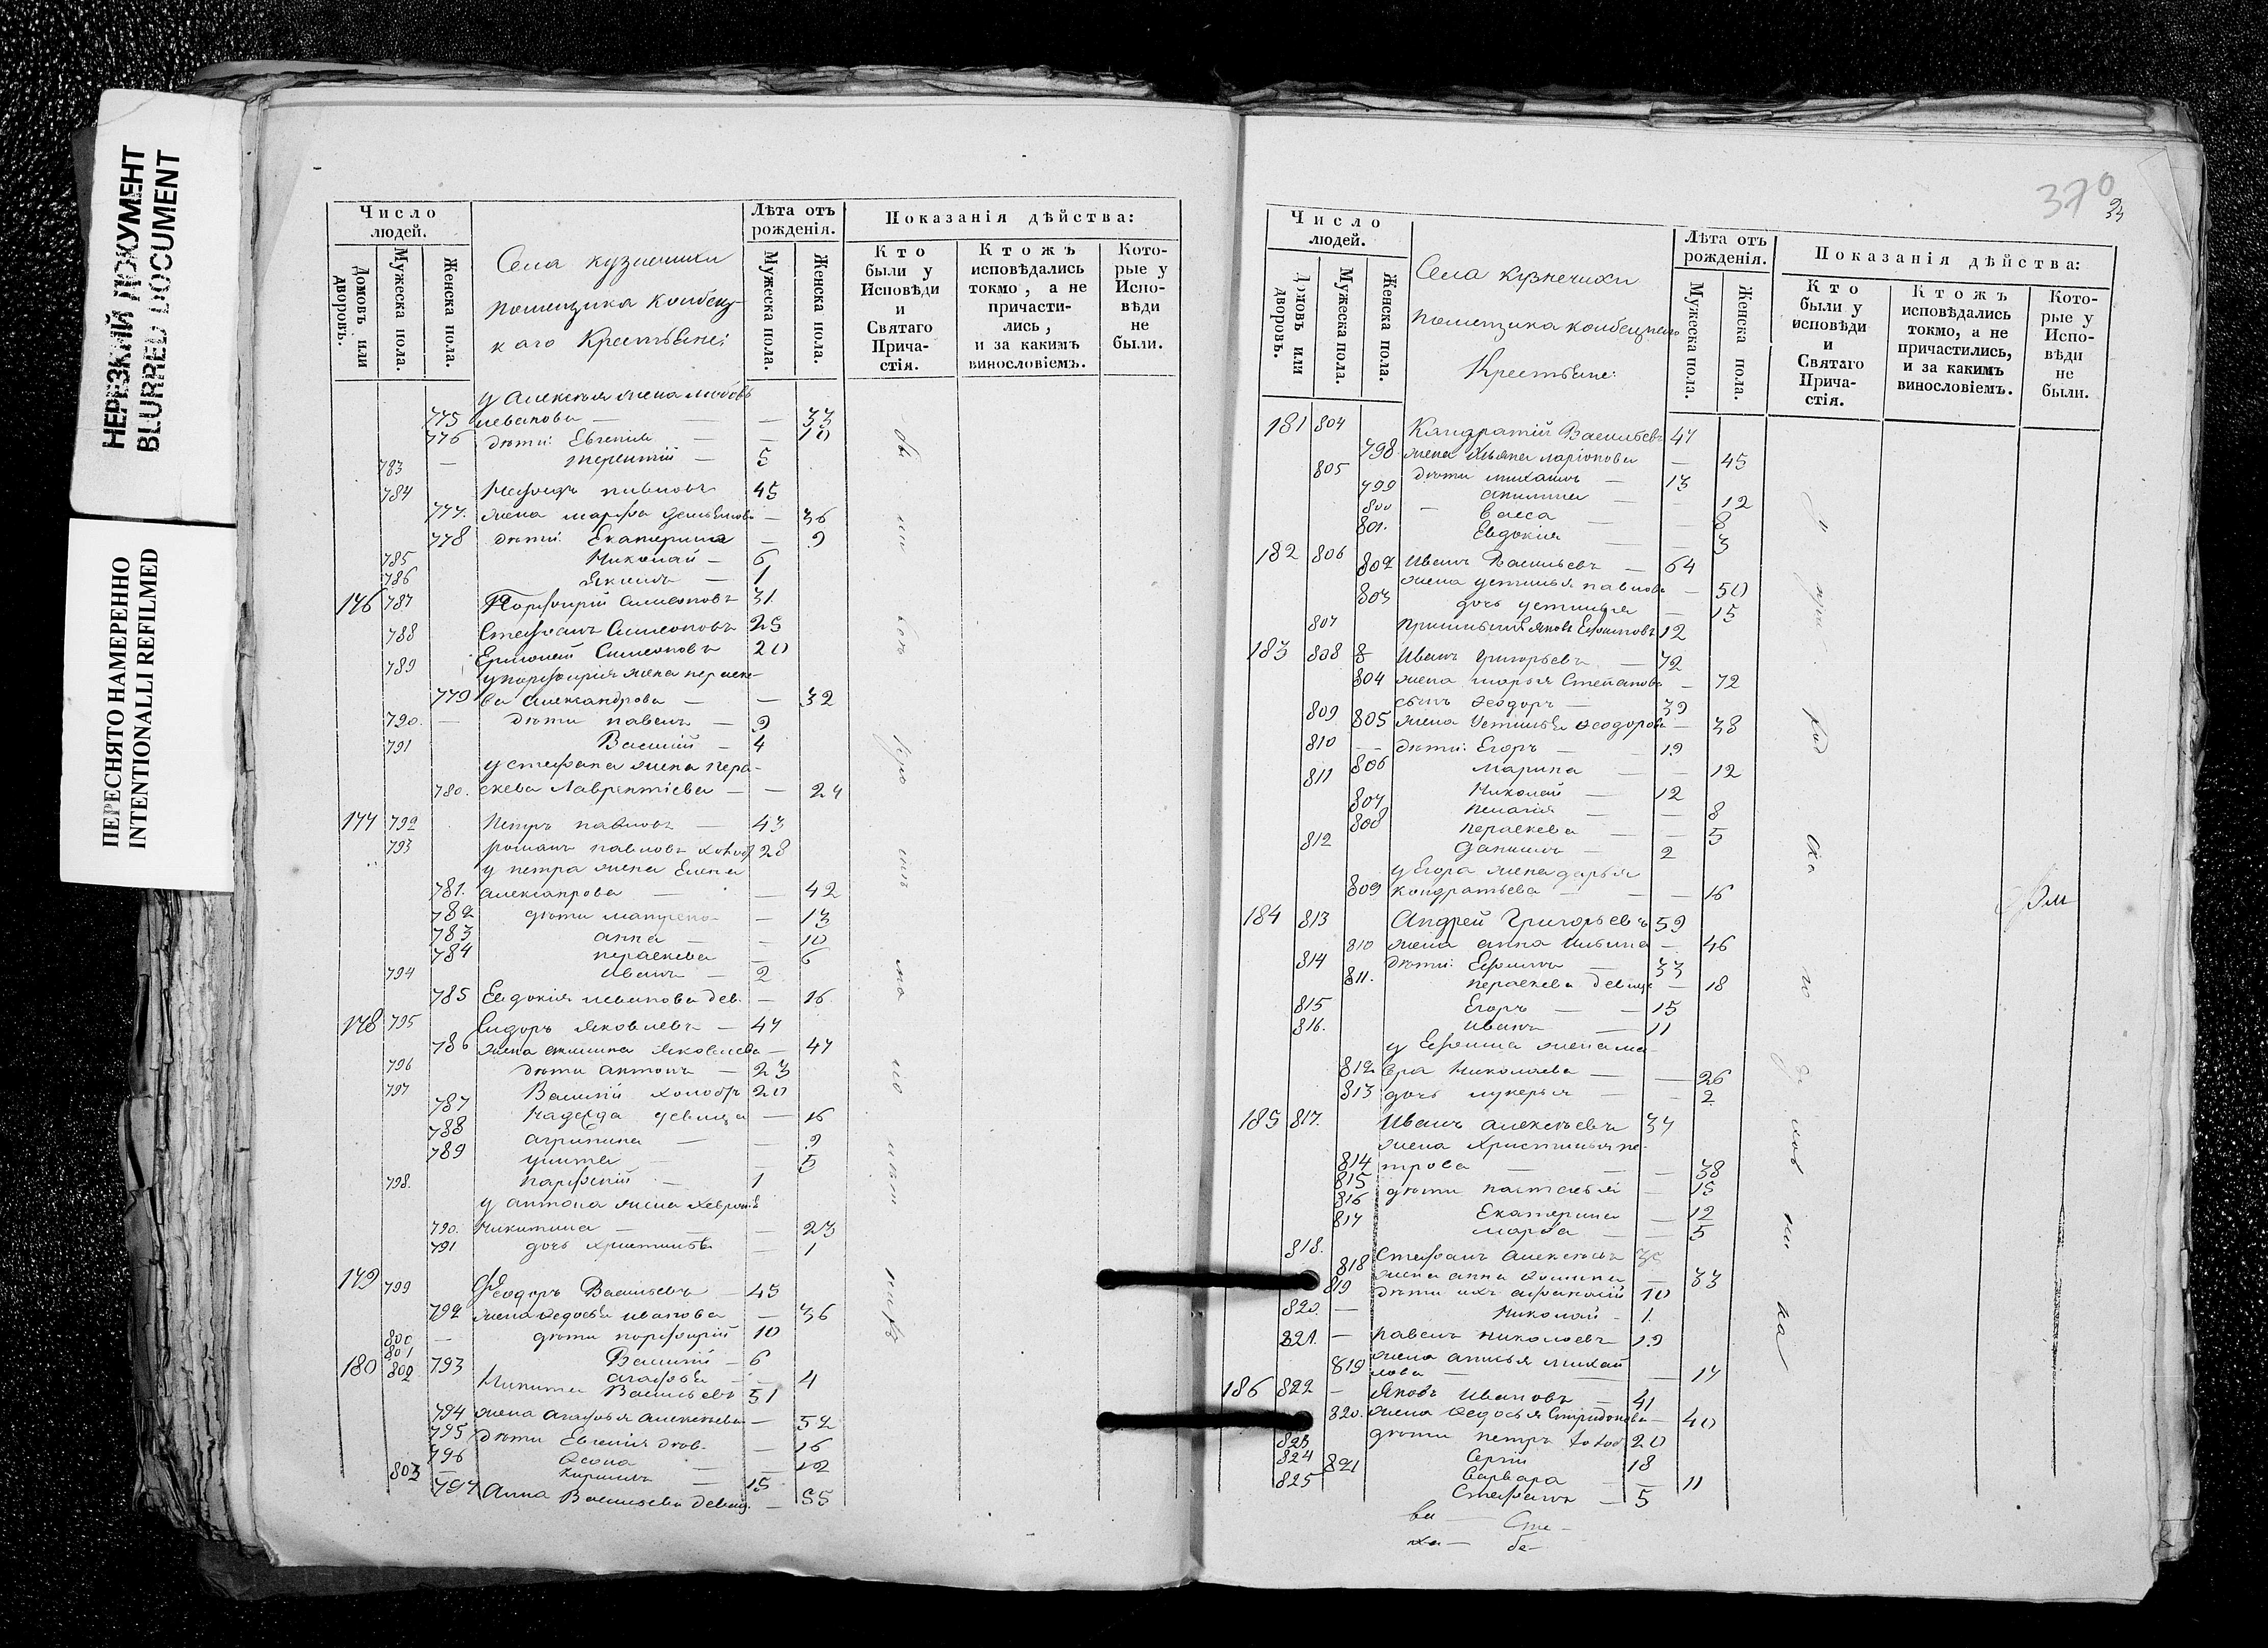 НЕРЕЗКИЙ ДОКУМЕНТ
BLURRED DOCUMENT
ПЕРЕСНЯТО НАМЕРЕННО
INTENTIONALLI REFILMED
Число людей.
Домовъ или дворовъ.
Мужеска пола.
Женска пола.
Села кузнечихи
помещика
каго Крестьяне:
Лѣта отъ рожденія.
Мужеска пола.
Женска пола.
Показанія дѣйства:
Кто были у Исповѣди и Святаго Прича-стія.
Ктожъ исповѣдались токмо, а не причасти-лись, и за какимъ винословіемъ.
Кото-рые у Испо-вѣди не были.
у Алексѣя жена любовь
775 иванова — — 33
776 дѣти: Евгенія — — 10
783 — терентій — 5
784 павловъ 45
777. жена марфа — 36
778 дѣти: Екатерина — 9
785 Николай — 6
786 Якимъ — 1
176 787 Порфирій Симеоновъ 31
788 Стефанъ Симеоновъ 25
789 Ермолай Симеоновъ 20
у порфирія жена параске-
779 ва Александрова — — 32
790. — дѣти павелъ — 9
791 Василій — 4
у стефана жена пара-
780. скева Лаврентіева — — 24
177 792 Петръ павловъ — 43
793 романъ павловъ холос 28
у петра жена Елена
781. александрова — — 42
782 дѣти матрена — 13
783 анна — — 10
784 параскева — 6
794 иванъ — 2
785 Евдокія иванова дев. — 16
178 795 Сидоръ Яковлевъ — 47
786 жена акилина Яковлева — 47
796 дѣти антонъ — 23
797 Василій холостъ 20
787 надежда девица — 16
788 агрипина — — 9
789 улита — — 5
798. парфеній — 1
у антона жена
790. никитина — — 23
791 дочь христинья — 1
179 799 Феодоръ Васильевъ — 45
792 жена федосья иванова — 36
800 — дѣти порфирій 10
801 Василій — 6
793 агафья — 4
180 802 Никита Васильевъ 51
794 жена агафья алексѣева — 52
795 дѣти Евгенія — 16
796 — 12
803 — кирилъ — 15
797 Анна Васильева девиц. — 55
370
Число людей.
Домовъ или дворовъ.
Мужеска пола.
Женска пола.
Села кузнечихи
помещика
Крестьяне:
Лѣта отъ рожденія.
Мужеска пола.
Женска пола.
Показанія дѣйства:
Кто были у исповѣди и Святаго Прича-стія.
Ктожъ исповѣдались токмо, а не причастились, и за какимъ винословіемъ.
Кото-рые у Испо-вѣди не были.
181 804 Кандратій Васильевъ 47
798 жена ларіонова — 45
805 дѣти михаилъ — 13
799 акилина — 12
800 — васса — — 8
801. Евдокія — 3
182 806 Иванъ Васильевъ — 64
802 жена устинья павлова — 50
803 дочь устинья — 15
807 Яковъ Ефимовъ 12
183 808 Иванъ Григорьевъ — 72
804 жена марья Степанова — 72
809 сынъ феодоръ — 39
805 жена Устинья феодорова — 38
810 — дѣти: Егоръ — 19
806 марина — — 12
811 Николай — 12
807 пелагія — — 8
808 параскева — — 5
812 данилъ — 2
у Егора жена дарья
809 кондратьева — — 16
184 813 Андрей Григорьевъ 59
810 жена анна Ильина — 46
814 дѣти: Ефимъ — 33
811. параскева девица — 18
815 Егоръ — — 15
816. иванъ — 11
у Ефима жена ма-
812 вра Николаева — — 26
813 дочь лукерья — 2
185 817. Иванъ алексѣевъ 37
жена христинья пе-
814 трова — — 38
815 дѣти настасья — 15
816 Екатерина — 12
817 марфа — — 5
818. Стефанъ Алексѣевъ
818 жена анна — 33
819 дѣти ихъ афанасій 10
820. — Николай — 1
821. — павелъ николаевъ 19
жена анисья михай
819 лова — — 17
186 822 — Яковъ Ивановъ — 41
820. жена федосья Спиридонова — 40
823 дѣти петръ холос 20
824 Сергій 18
821 варвара — — 11
825 Стефанъ — 5